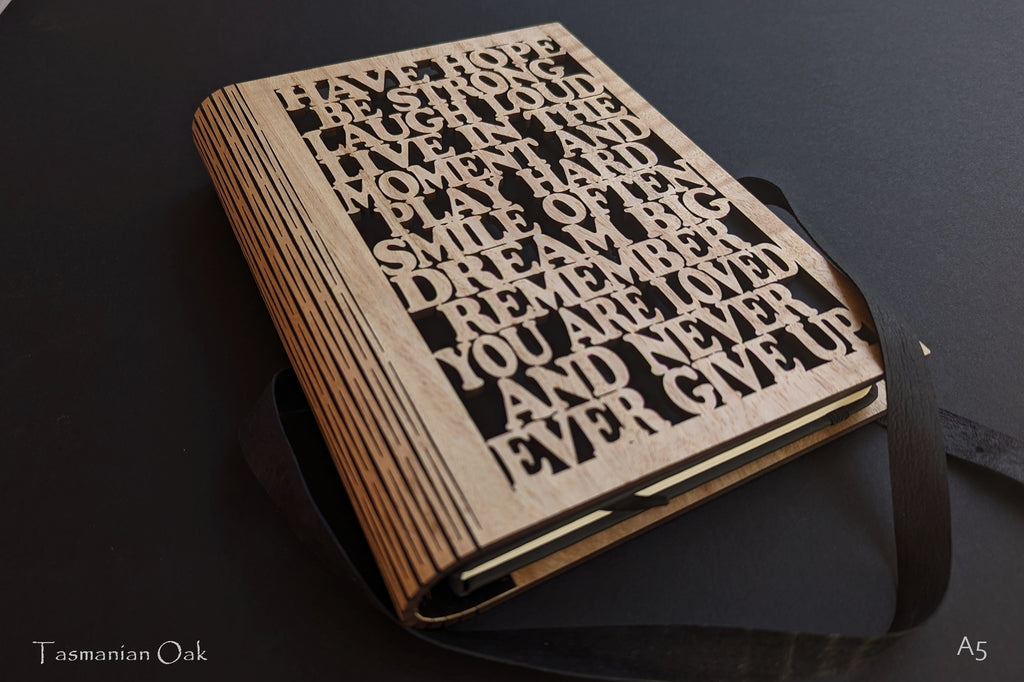 HAVE HOPE
BE STRONG
LAUGH LOUD
LIVE IN THE
MOMENT AND
PLAY HARD
SMILE OFTEN
DREAM BIG
REMEMBER
YOU ARE LOVED
AND NEVER
EVER GIVE UP
Tasmanian Oak
A5